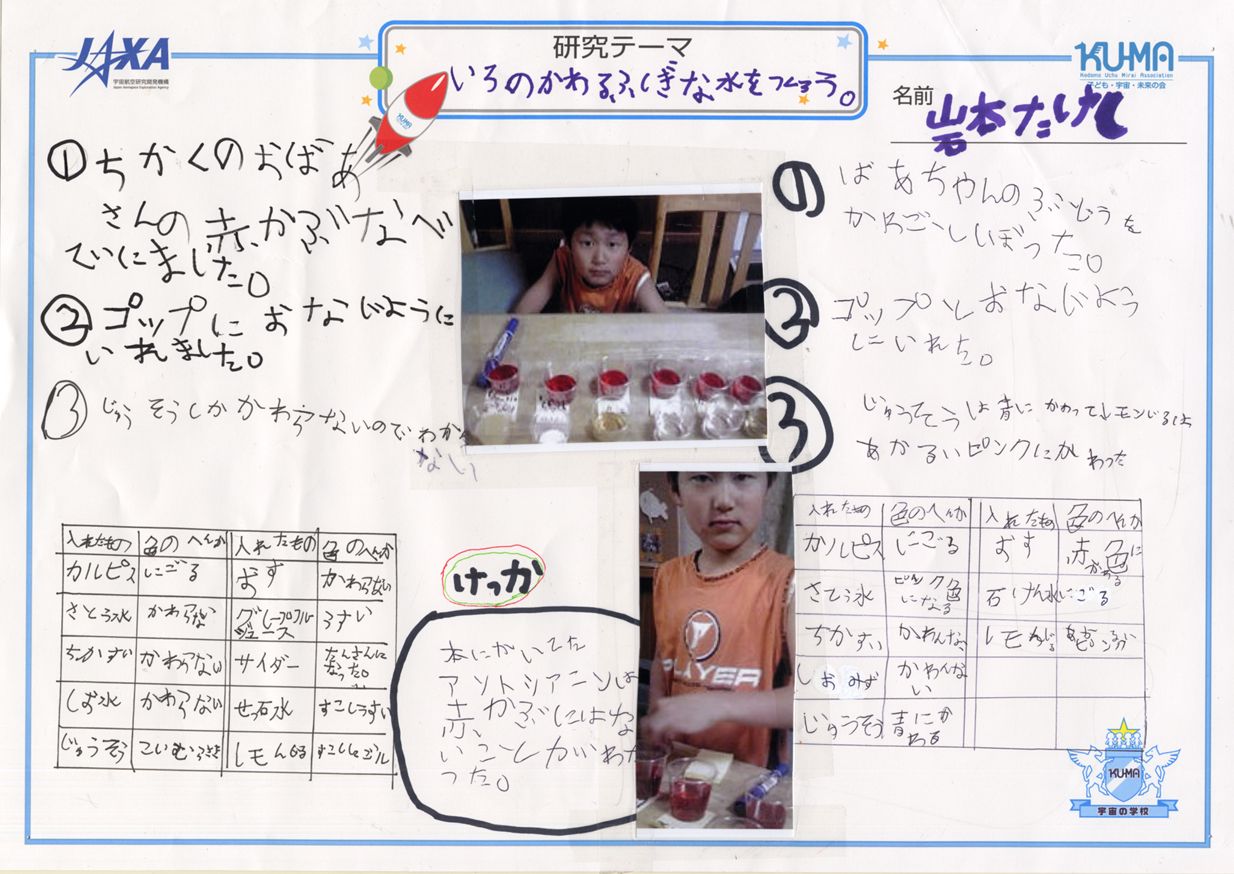 JAXA
宇宙航空研究開発機構
Japan Aerospace Exploration Agency
研究テーマ
いろのかわるふしぎな水をつくろう。
KUMA
KUMA
Kodomo Uchu Mirai Association
子ども・宇宙・未来の会
名前 岩本たけし
①ちかくのおばあ
さんの赤かぶなべ
でにました。
②コップにおなじように
いれました。
③じゅうそうしかかわらないのでわから
ない
入れたもの 色のへんか 入れたもの 色のへんか
カルピス にごる おす かわらない
さとう水 かわらない グレープフルジュース うすい
ちかすい かわらない サイダー たんさんになった。
しお水 かわらない せっ石水 すこしうすい
じゅうそう こいむらさき レモンじる すこしにごル
けっか
本にかいてた
アントシアニンは
赤かぶにはな
いことがわか
った。
PLAYER
①ばあちゃんのぶどうを
しぼった。
②コップにおなじよう
にいれた。
③じゅうそうは青にかわってレモンじるは
あかるいピンクにかわった
入れたもの 色のへんか 入れたもの 色のへんか
カルピス にごる おす 赤色にかわる
さとう水 ピンク色になる 石けん水 にごる
ちかすい かわんない レモンじる
しおみず かわんない
じゅうそう 青にかわる
KUMA
宇宙の学校